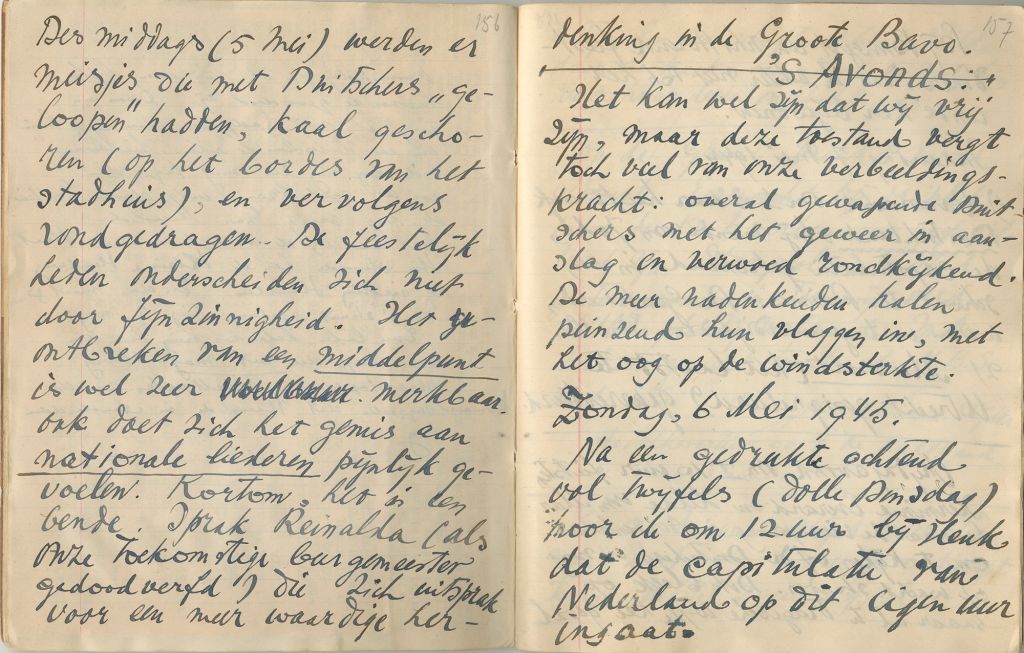 156
Des middags (5 Mei) werden er
meisjes die met Duitschers „ge-
loopen" hadden, kaal gescho-
ren (op het bordes van het
stadhuis), en vervolgens
rondgedragen. De feestelijk
heden onderscheiden zich niet
door fijnzinnigheid. Het
ontbreken van een middelpunt
is wel zeer merkbaar.
ook doet zich het gemis aan
nationale liederen pijnlijk ge-
voelen. Kortom, het is een
bende. Sprak Reinalda (als
onze toekomstige burgemeester
gedoodverfd) die zich uitsprak
voor een meer waardige her-
157
denking in de Groote Bavo.
'S Avonds:
Het kan wel zijn dat wij vrij
zijn, maar deze toestand vergt
toch veel van onze verbeeldings-
kracht: overal gewapende Duit-
schers met het geweer in aan-
slag en verwoed rondkijkend.
De meer nadenkenden halen
peinzend hun vlaggen in, met
het oog op de windsterkte.
Zondag, 6 Mei 1945.
Na een gedrukte ochtend
vol twijfels (dolle Dinsdag)
hoor ik om 12 uur bij Henk
dat de capitulatie van
Nederland op dit eigen uur
ingaat.